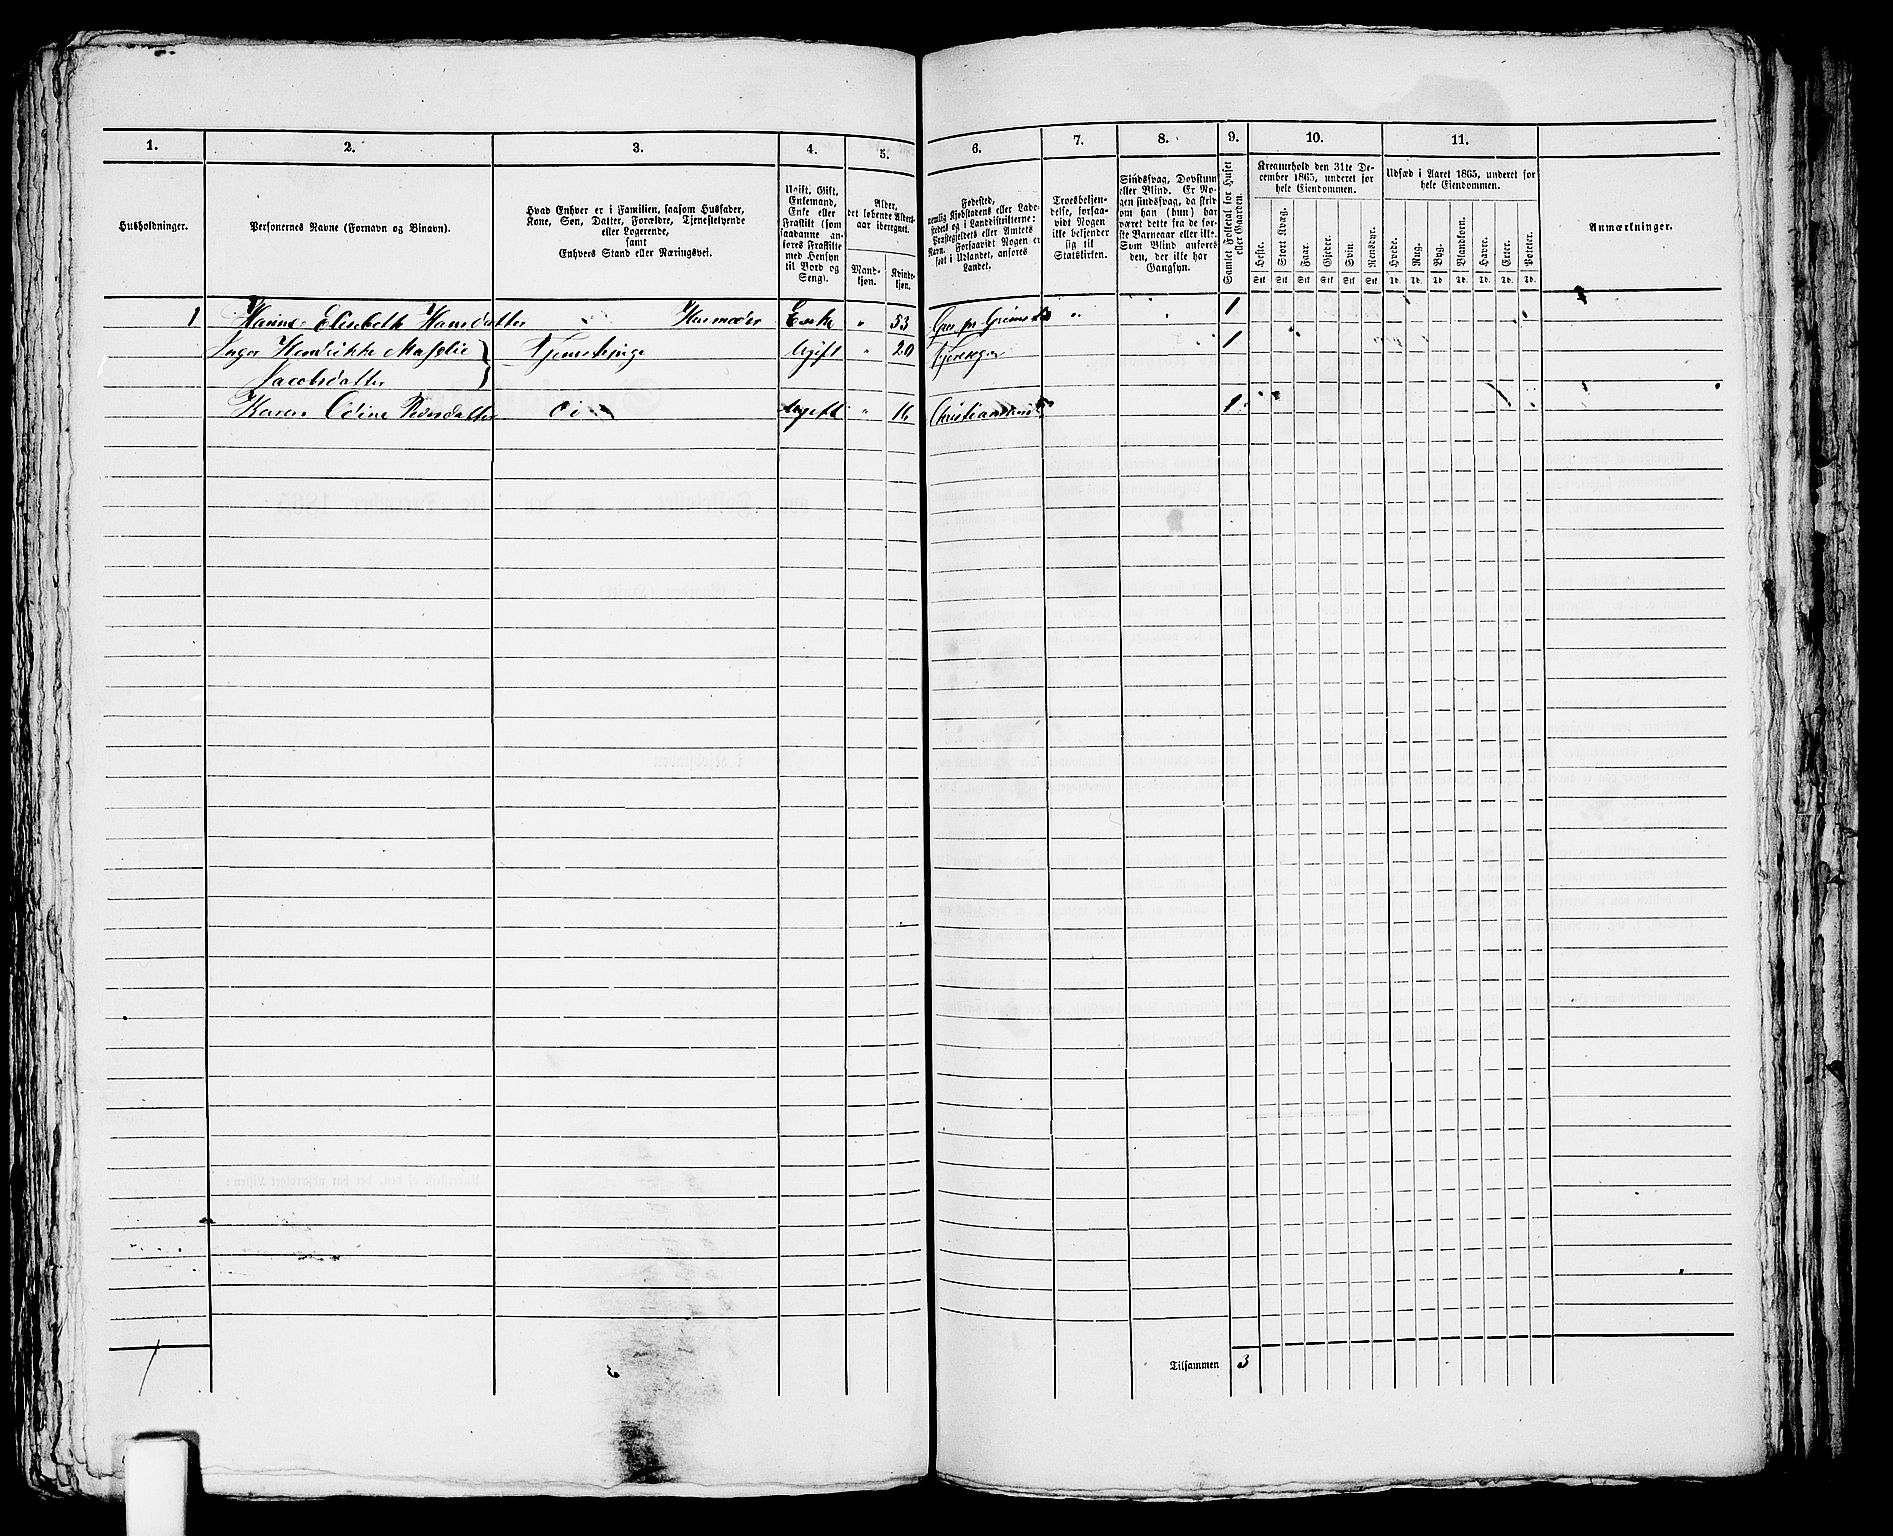 1. 2. 3. 4. 5. 6. 7. 8. 9. 10. 11.
Husholdninger.
Personernes Navne (Fornavn og Binavn).
Hvad Enhver er i Familien, saasom Husfader,
Kone, Søn, Datter, Forældre, Tjenestetyende
eller Logerende,
samt
Enhvers Stand eller Næringsvei.
Ugift, Gift,
Enkemand,
Enke eller
Fraskilt (som
saadanne an-
føres Fraskilte
med Hensyn
til Bord og
Seng).
Alder,
det løbende Alders-
aar iberegnet.
Mand-
kjøn.
Kvinde-
kjøn.
Fødested,
nemlig Kjøbstadens eller Lade-
stedets og i Landdistrikterne:
Præstegjeldets eller Amtets
Navn. Forsaavidt Nogen er
født i Udlandet, anføres
Landet.
Troesbekjen-
delse, forsaa-
vidt Nogen
ikke bekjender
sig til
Statskirken.
Sindssvag, Døvstum
eller Blind. Er No-
gen sindssvag, da skriv
om han (hun) har
været dette fra de før-
ste Barneaar eller ikke.
Som Blind anføres
den, der ikke har
Gangsyn.
Samlet Folketal for Huset
eller Gaarden.
Kreaturhold den 31te De-
cember 1865, underet for
hele Eiendommen.
Heste. Stort Kvæg. Faar. Gjeder. Svin. Rensdyr.
Stk Stk Stk Stk Stk Stk
Udsæd i Aaret 1865, underet for
hele Eiendommen.
Hvede. Rug. Byg. Blandkorn. Havre. Erter. Poteter.
Td. Td. Td. Td. Td. Td. Td.
Anmærkninger.
1 Hanne Elisebeth Hansdatter Husmoder Enke " 53 " 1
Inger Hendrikke Mathilie } Tjenestepige Ugift " 20 1
Jacobsdatter
Karen Odine Pedersdatter Ugift " 16 Christianssand 1
1
Tilsammen 3